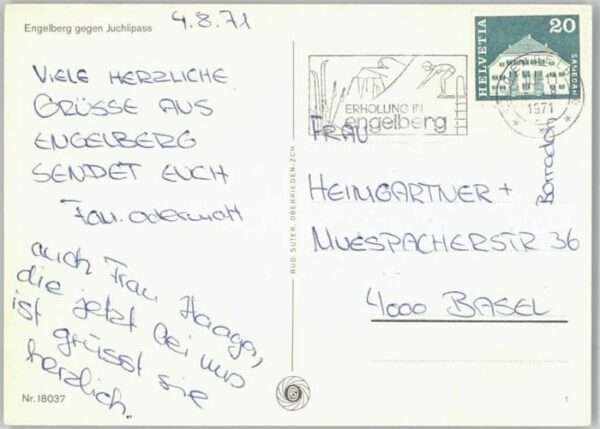 Engelberg gegen Juchlipass
4.8.71
VIELE HERZLICHE
GRÜSSE AUS
ENGELBERG
SENDET EUCH
Fam. odermatt
auch Frau Haager,
die jetzt bei uns
ist grüsst sie
herzlich.
Nr. 18037
RUD. SUTER, OBERRIEDEN-ZCH
ERHOLUNG IN
engelberg
1971
HELVETIA
20
FRAU
HEIMGARTNER +
MUESPACHERSTR 36
4000 BASEL
1